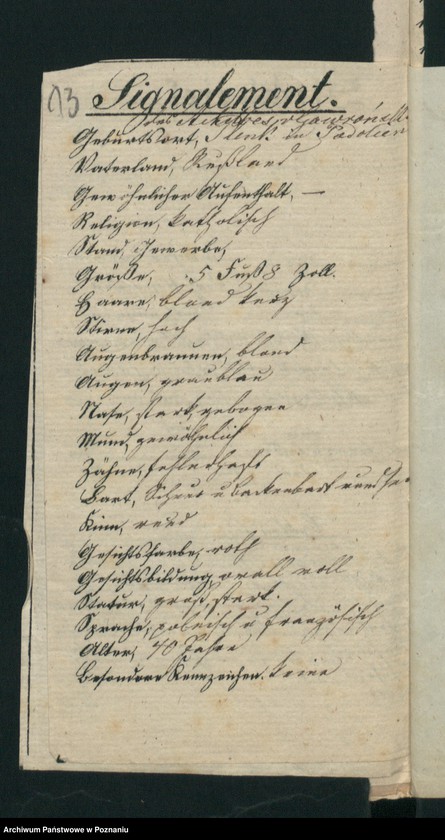 13
Signalement.
des
Geburtsort, in Podolien
Vaterland, Rußland
Gewöhnlicher Aufenthalt, —
Religion, katholisch
Stand, Gewerbe,
Größe, 5 Fuß 8 Zoll.
Haare, blond kurz
Stirne, hoch
Augenbraunen, blond
Augen, graublau
Nase, stark, gebogen
Mund, gewöhnlich
Zähne, fehlerhaft
Bart, Schnur u Backenbart rund
Kinn, rund
Gesichtsfarbe, roth
Gesichtsbildung, oval voll
Statur, groß, stark.
Sprache, polnisch u französisch
Alter, 40 Jahre
Besondere Kennzeichen. keine
Archiwum Państwowe w Poznaniu